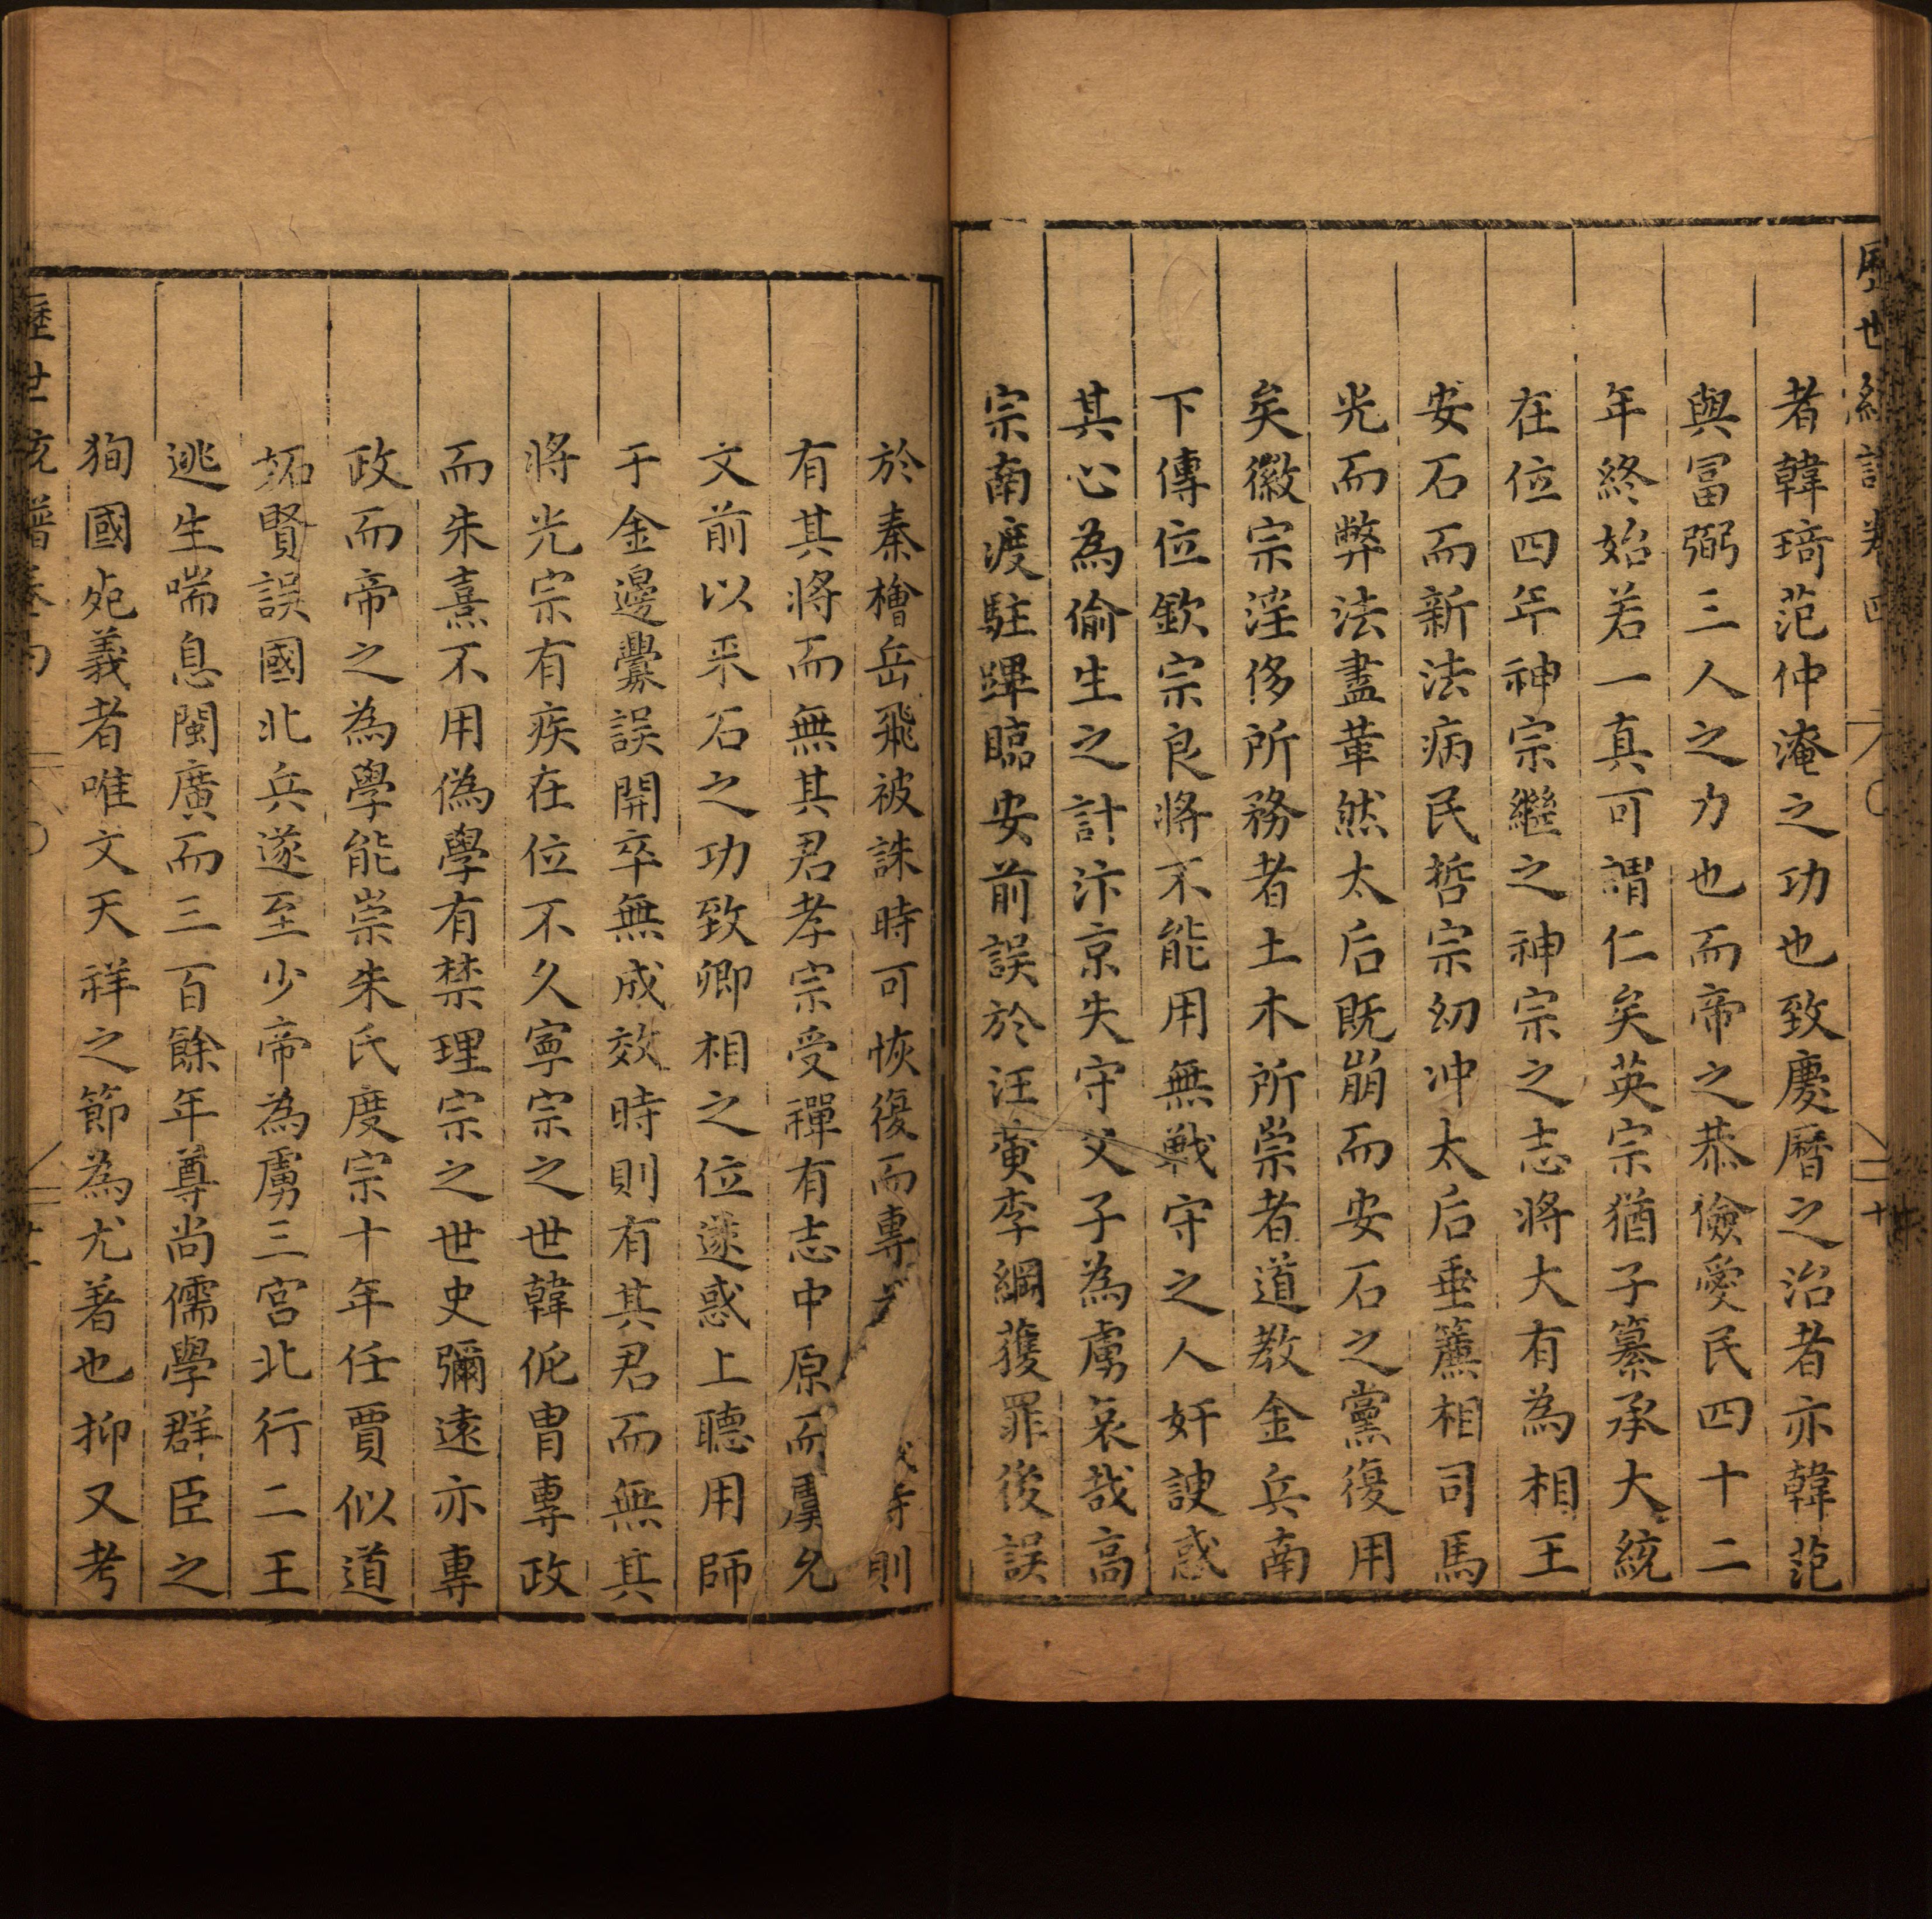 歷世統譜卷四
者韓琦范仲淹之功也致慶曆之治者亦韓范
與冨弼三人之力也而帝之恭儉愛民四十二
年終始若一真可謂仁矣英宗猶子纂承大統
在位四年神宗繼之神宗之志將大有為相王
安石而新法病民哲宗幼冲太后垂簾相司馬
光而弊法盡革然太后既崩而安石之黨復用
矣徽宗淫侈所務者土木所崇者道教金兵南
下傳位欽宗良將不能用無戰守之人奸諛惑
其心為偷生之計汴京失守父子為虜哀哉高
宗南渡駐蹕臨安前誤於汪黃李綱獲罪後誤
於秦檜岳飛被誅時可恢復而專 時則
有其將而無其君孝宗受禪有志中原而虞允
文前以采石之功致卿相之位遂惑上聽用師
于金邊釁誤開卒無成效時則有其君而無其
將光宗有疾在位不久寧宗之世韓侂冑專政
而朱熹不用偽學有禁理宗之世史彌遠亦專
政而帝之為學能崇朱氏度宗十年任賈似道
妬賢誤國北兵遂至少帝為虜三宮北行二王
逃生喘息閩廣而三百餘年尊尚儒學群臣之
狥國死義者唯文天祥之節為尤著也抑又考
歷世統譜卷四